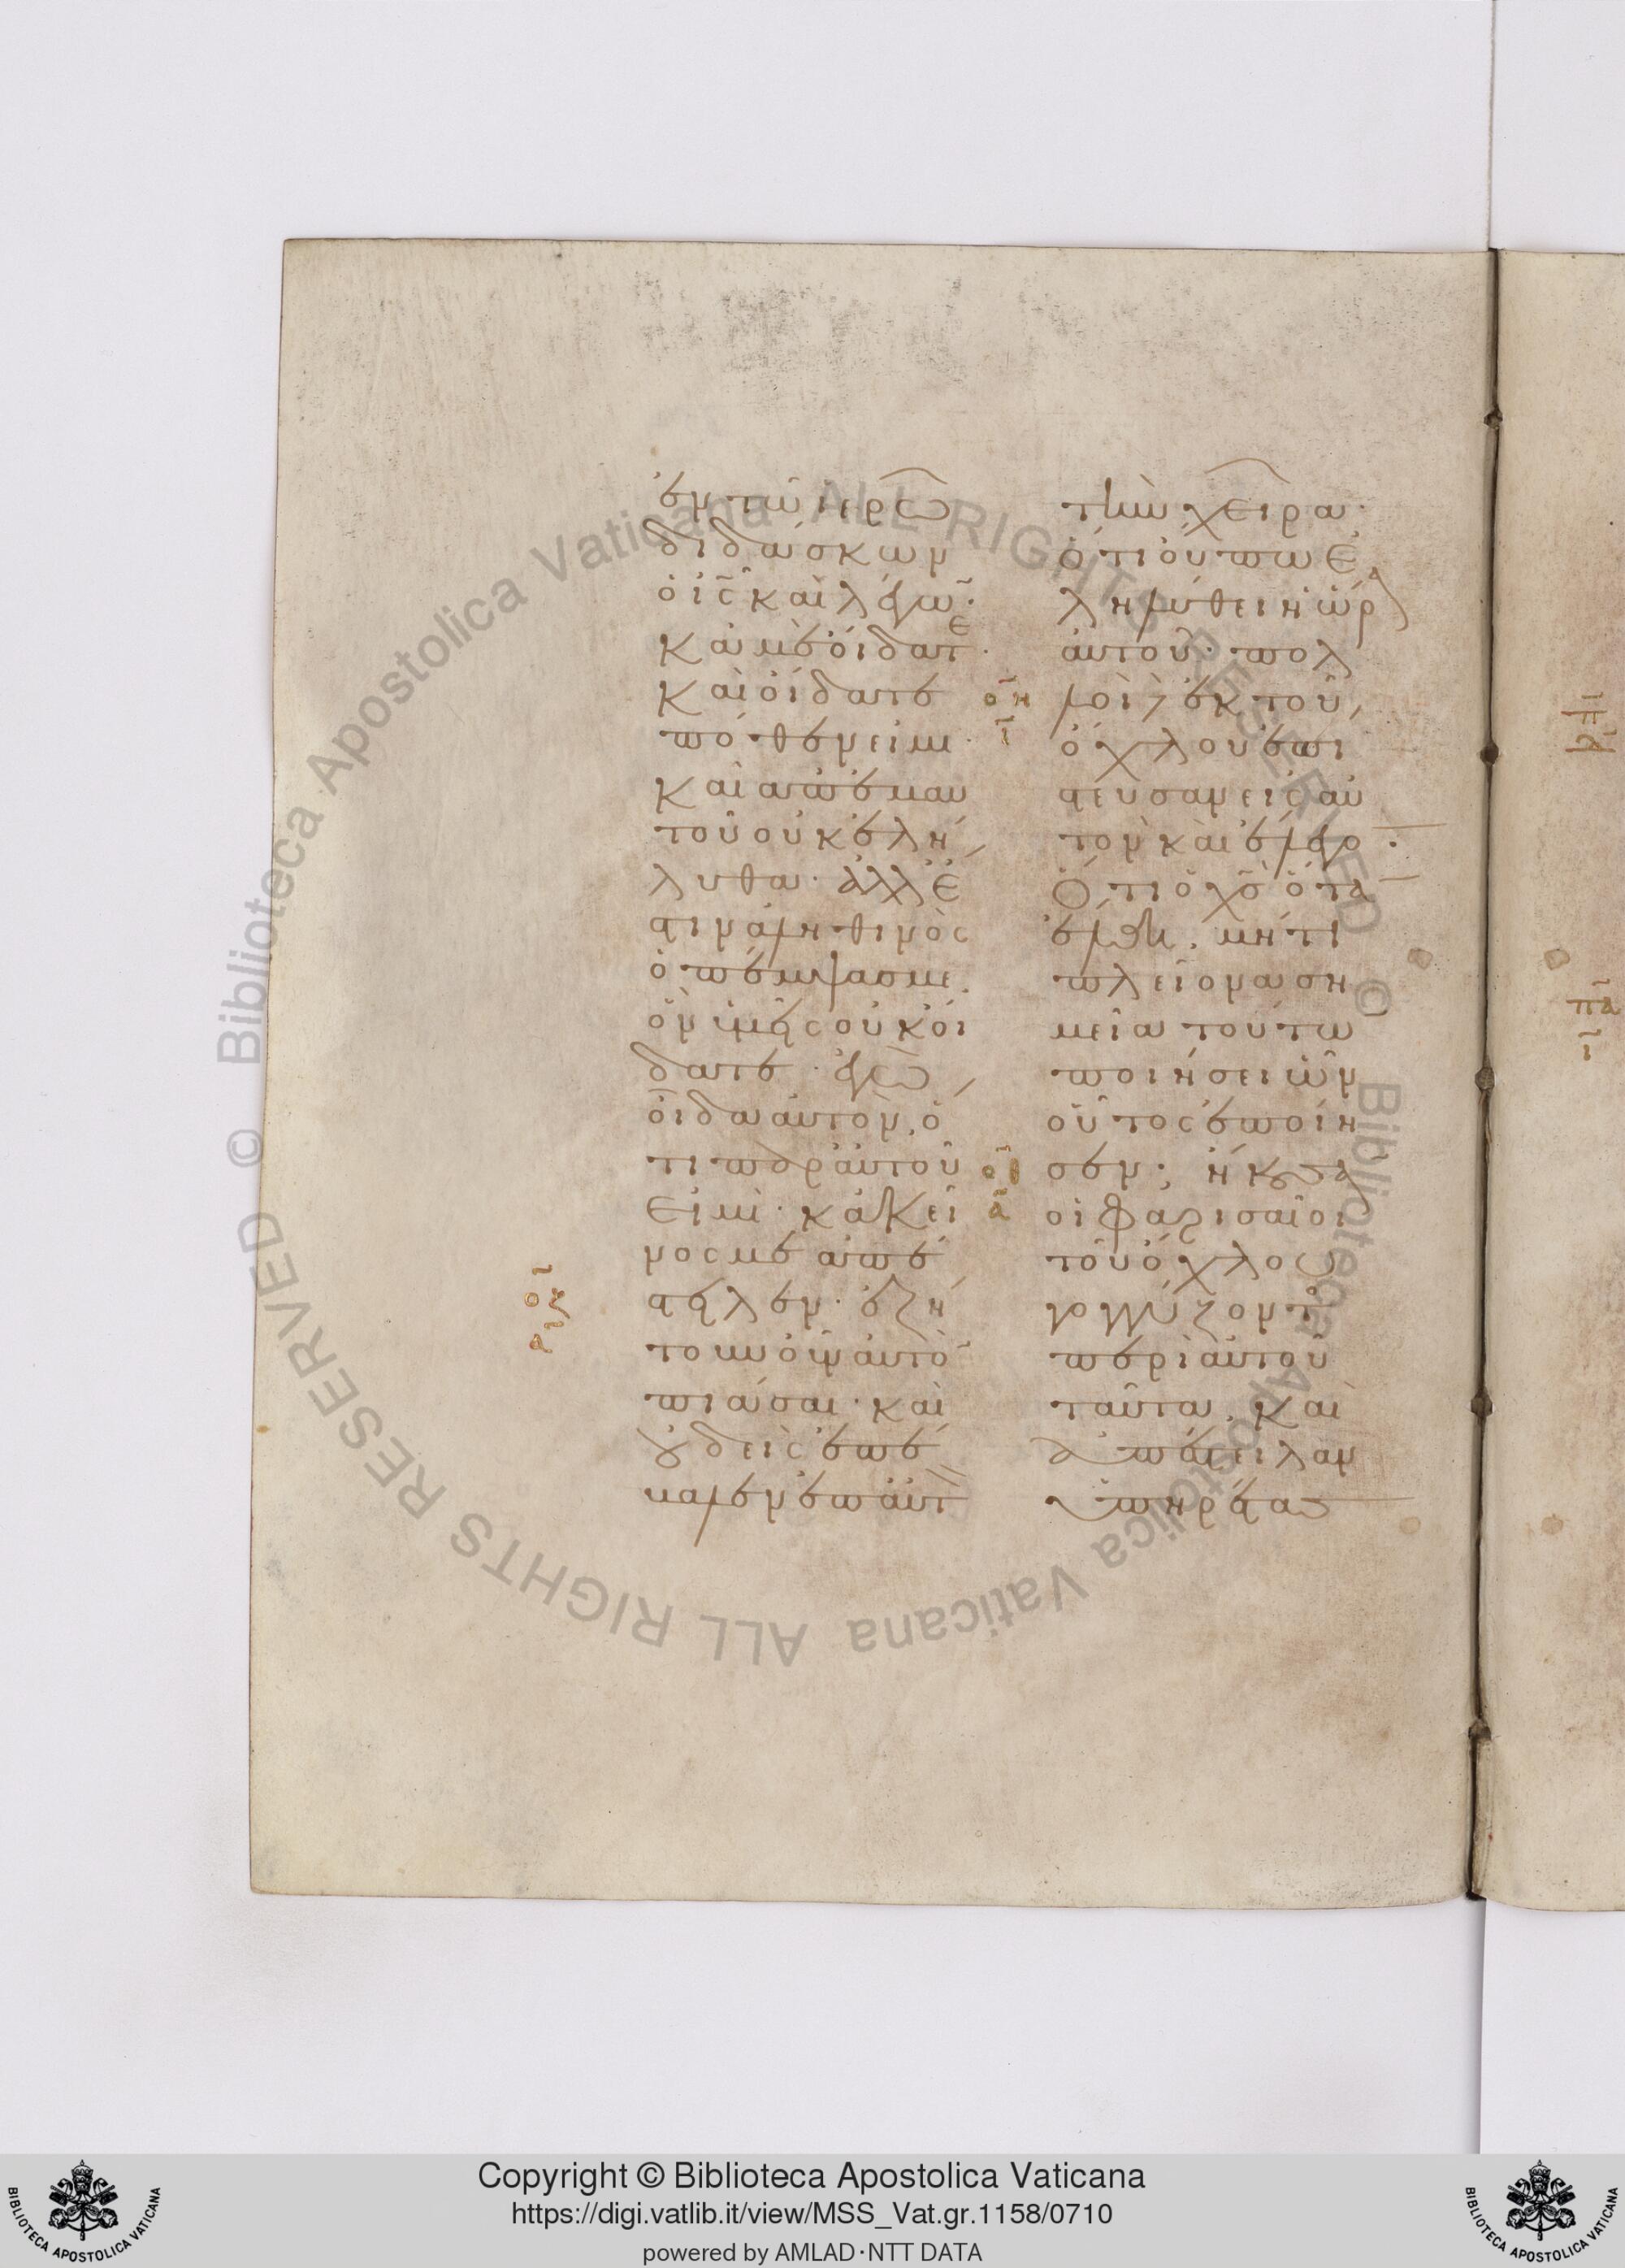 ἐν τῶ ἱερῶ
διδάσκων
ὁ ις̅ καὶ λέγω̅·
κἀμὲ οἴδατε·
καὶ οἴδατε
πόθεν εἰμι·
καὶ ἀπ' ἐμαυ
τοῦ οὐκ ἐλή
λυθα· ἀλλ' ἔ
στιν ἀληθινὸς
ὁ πέμψας με.
ὃν ὑμεῖς οὐκ οἴ
δατε· ἐγὼ
οἶδα αὐτὸν, ὅ
τι παρ' αὐτοῦ
εἰμι· κἀκεῖ
νος με ἀπέ
στειλεν· ἐζή
τουν οὖν αὐτὸ̅
πιάσαι· καὶ
οὐδεὶς ἐπέ
βαλεν ἐπ' αὐτ
ο̅η
ι̅
ο̅θ
α̅
τὴν χεῖρα·
ὅτι οὔπω ἐ
ληλύθει ἡ ὥρα
αὐτοῦ· πολ
λοὶ δὲ ἐκ τοῦ
ὄχλου ἐπί
στευσαν εἰς αὐ
τὸν καὶ ἔλεγον·
Ὅτι ὁ χς̅ ὅταν
ἔλθη. μήτι
πλείονα ση
μεῖα τούτων
ποιήσει ὧν
οὗτος ἐποίη
σεν; ἤκουσαν
οἱ Φαρισαῖοι
τοῦ ὄχλου
γογγύζοντος
περὶ αὐτοῦ
ταῦτα. καὶ
ἀπέστειλαν
ὑπηρέτας
πα̅
ι̅
Copyright © Biblioteca Apostolica Vaticana
https://digi.vatlib.it/view/MSS_Vat.gr.1158/0710
powered by AMLAD·NTT DATA
BIBLIOTECA APOSTOLICA VATICANA
BIBLIOTECA APOSTOLICA VATICANA
© Biblioteca Apostolica Vaticana ALL RIGHTS RESERVED
© Biblioteca Apostolica Vaticana ALL RIGHTS RESERVED